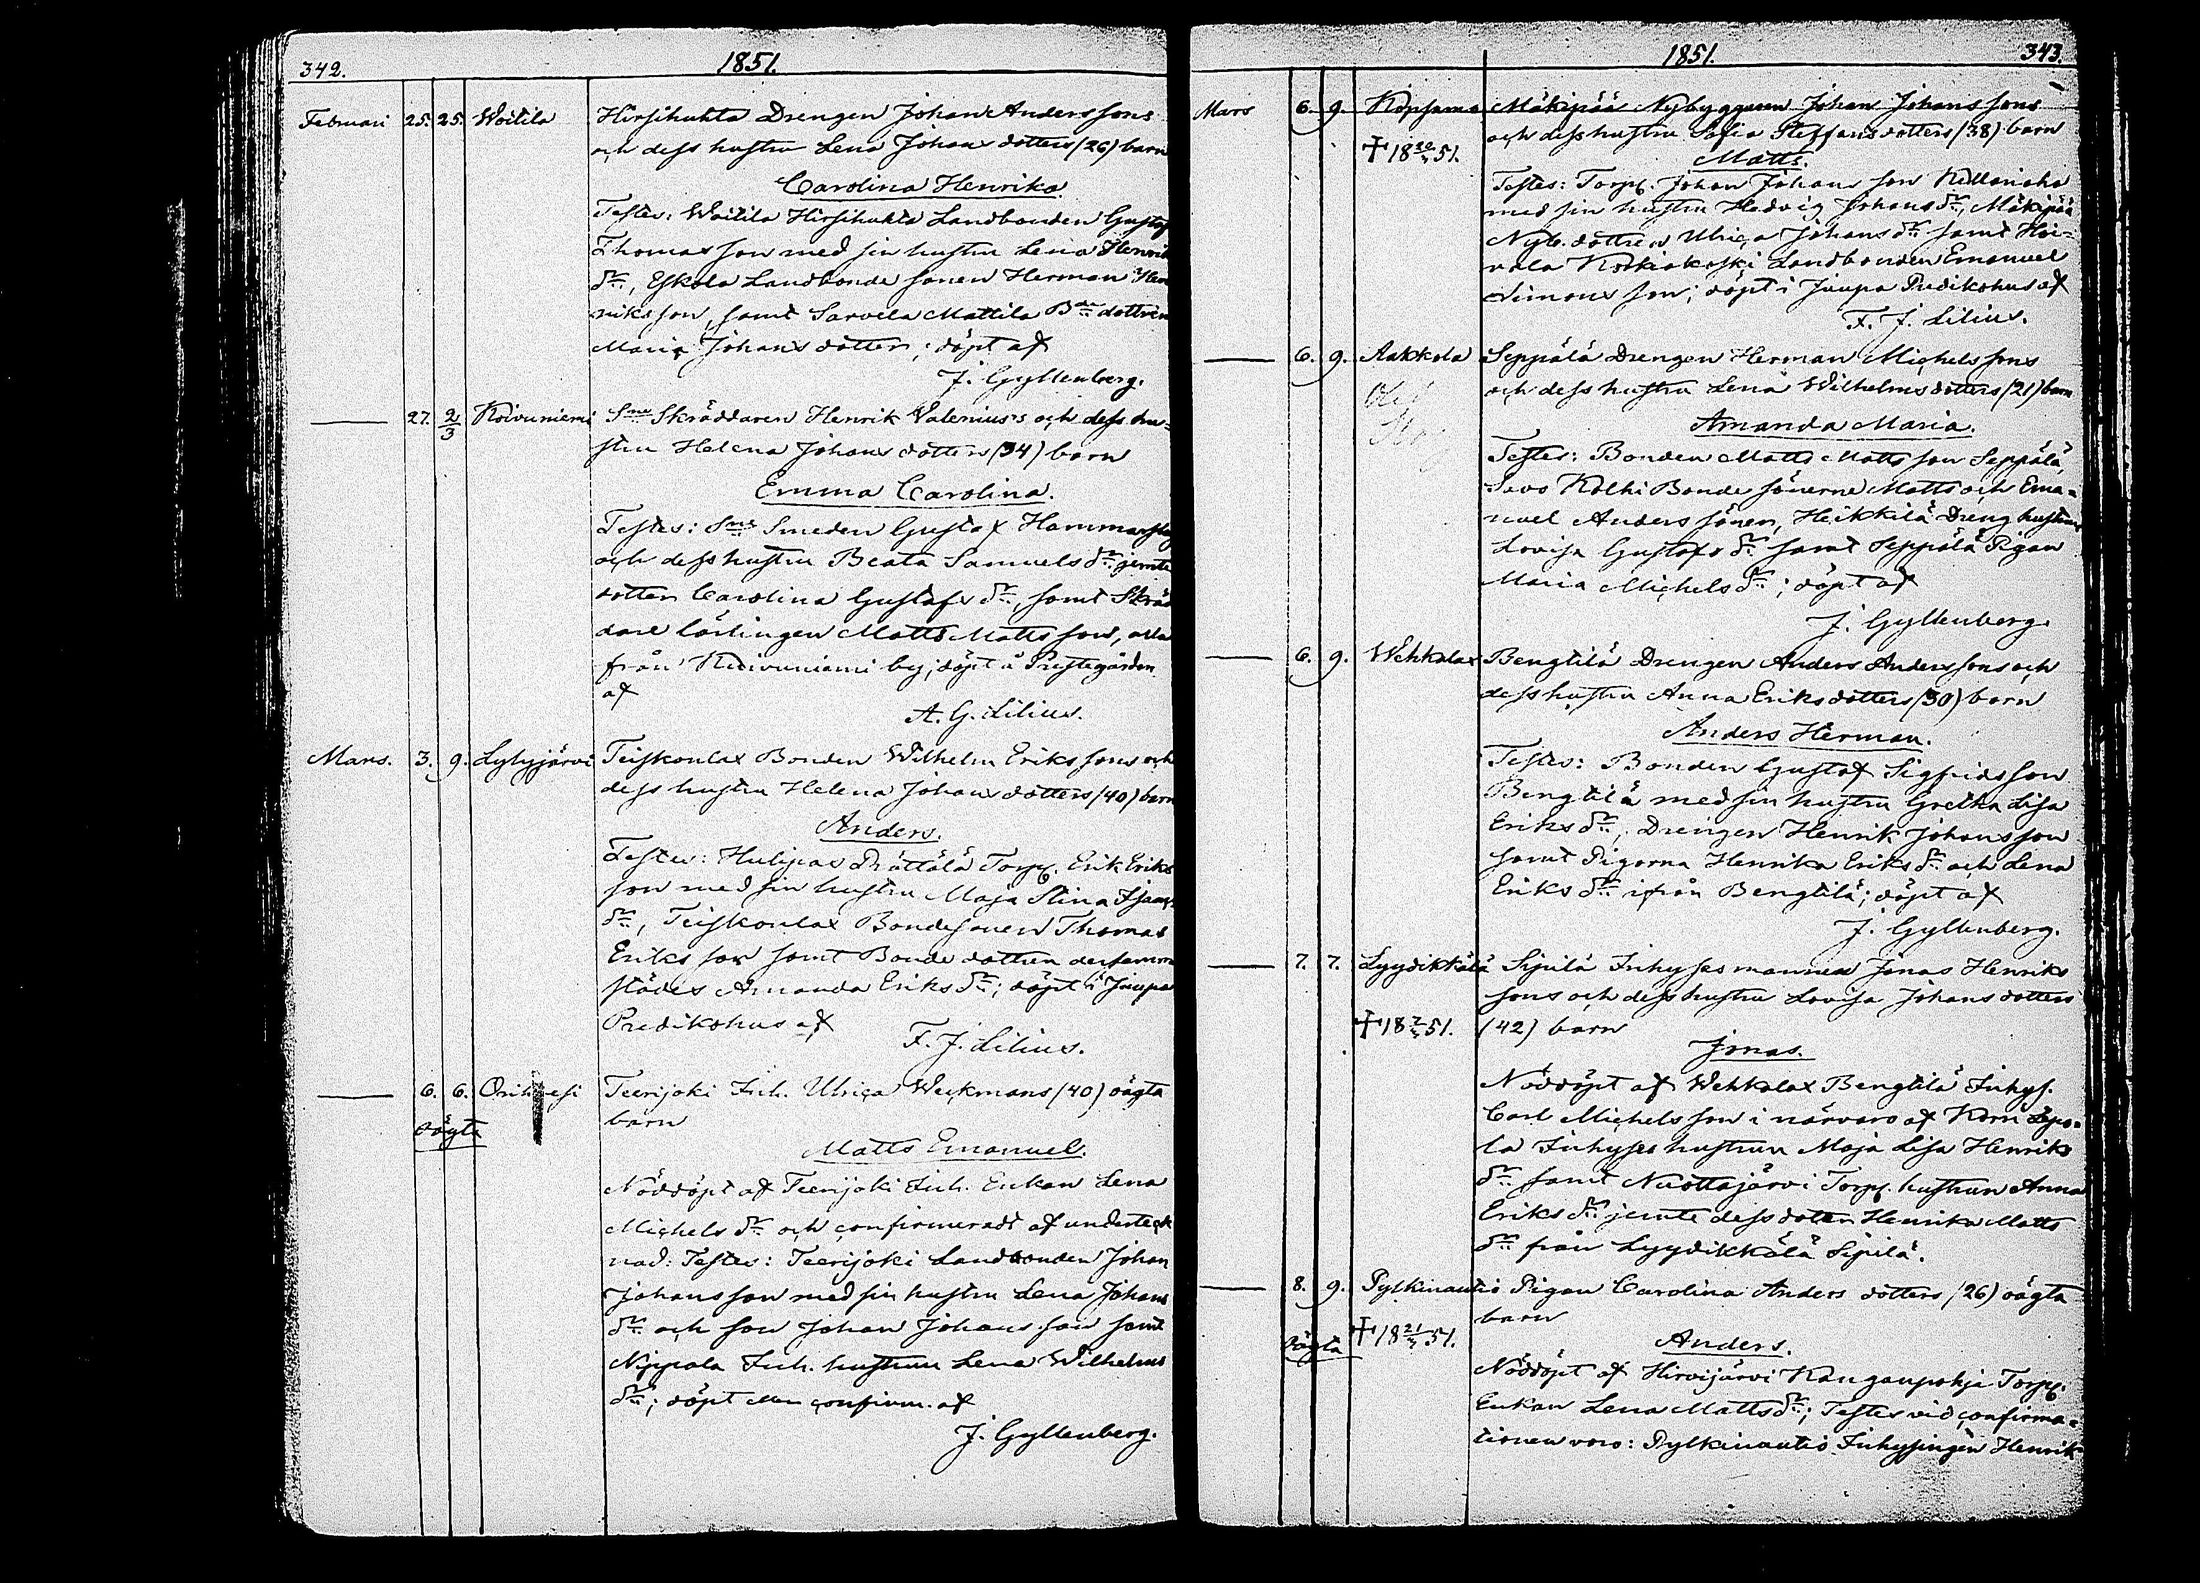 342.
1851.
Februari 25. 25. Woitila Hirsihuhta Drengen Johan Anders sons
och dess hustru Lena Johans dotters (26) barn
Carolina Henrika
Testes: Woitila Hirsihuhta Landbonden Gustaf
Thomas son med sin hustru Lena Henriks
dr, Eskola Landbonde sonen Herman Hen
riks son, samt Sarvela Mattila Bde dottren
Maria Johans dotter; döpt af
J. Gyllenberg.
— 27. 2/3 Koivuniemi Sne Skräddaren Henrik Valenius's och dess hu-
stru Helena Johans dotters (34) barn
Emma Carolina.
Testes: Sne Smeden Gustaf Hammar
och dess hustru Beata Samuels dr jemte
dotter Carolina Gustafs dr, samt Skräd
dare lärlingen Matts Matts son, alla
från Koivuniemi by; döpt å Prestegården
af
A. G. Lilius.
Mars. 3. 9. Lylyjärvi Teiskonlax Bonden Wilhelm Eriks sons och
dess hustru Helena Johans dotters (40) barn
Anders.
Testes: Hulipas Prättälä Torp. Erik Eriks
son med sin hustru Maja Stina Isaacs
dr, Teiskonlax Bondesonen Thomas
Eriks son samt Bonde dottren dersamma
städes Amanda Eriks dr; döpt i Jaupa
Predikohus af
F. J. Lilius.
— 6. 6. Orihvesi Teerijoki Inh. Ulrica Weckmans (40) oägta
oägta barn
Matts Emanuel.
Nöddöpt af Teerijoki Inh. Enkan Lena
Michels dr och confirmeradt af underteck
nad: Testes: Teerijoki Landbonden Johan
Johans son med sin hustru Lena Johans
dr och son Johan Johans son samt
Nippala Inh. hustrun Lena Wilhelms
dr; döpt eller confirm. af
J. Gyllenberg.
1851.
343.
Mars 6. 9. Köpsama Mäkipää Nybyggaren Johan Johans sons
och dess hustru Sofia Steffans dotters (38) barn
✝ 18 20/3 51.
Matts.
Testes: Torp. Johan Johans son
med sin hustru Hedvig Johans dr, Mäkipää
Nyb. dottren Ulrica Johans dr samt Hoi-
vala Koskiakoski Landbonden Emanuel
Simons son; döpt i Jaupa Predikohus af
F. J. Lilius.
— 6. 9. Aakkola Seppälä Drengen Herman Michels sons
och dess hustru Lena Wilhelms dotters (21) barn
Amanda Maria.
Testes: Bonden Matts Matts son Seppälä,
Savo Kolhi Bonde sönerne Matts och Ema-
nuel Anders söner, Heikkilä Dreng hustrun
Lovisa Gustafs dr samt Seppälä Pigan
Maria Michels dr; döpt af
J. Gyllenberg.
— 6. 9. Wehkalax Bengtilä Drengen Anders Anders sons och
dess hustru Anna Eriks dotters (30) barn
Anders Herman.
Testes: Bonden Gustaf Sigfrids son
Bengtilä med sin hustru Gretha Lisa
Eriks dr, Drengen Henrik Johans son
samt Pigorna Henrika Eriks dr och Lena
Eriks dr ifrån Bengtilä; döpt af
J. Gyllenberg.
— 7. 7. Lyydikkälä Sipilä Inhyses mannen Jonas Henriks
sons och dess hustru Lovisa Johans dotters
✝ 18 7/3 51. (42) barn
Jonas.
Nöddöpt af Wehkalax Bengtilä Inhys.
Carl Michels son i närvaro af Korri Lepo-
la Inhyses hustrun Maja Lisa Henriks
dr samt Nuottajärvi Torp. hustrun Anna
Eriks dr jemte dess dotter Henrika Matts
dr från Lyydikkälä Sipilä.
— 8. 9. Pylkinautio Pigan Carolina Anders dotters (26) oägta
barn
oägta ✝ 18 21/3 51.
Anders.
Nöddöpt af Hirvijärvi Kangaspohja Torp.
Enkan Lena Matts dr; Testes vid confirma-
tionen voro: Pylkinautio Inhysingen Henrik